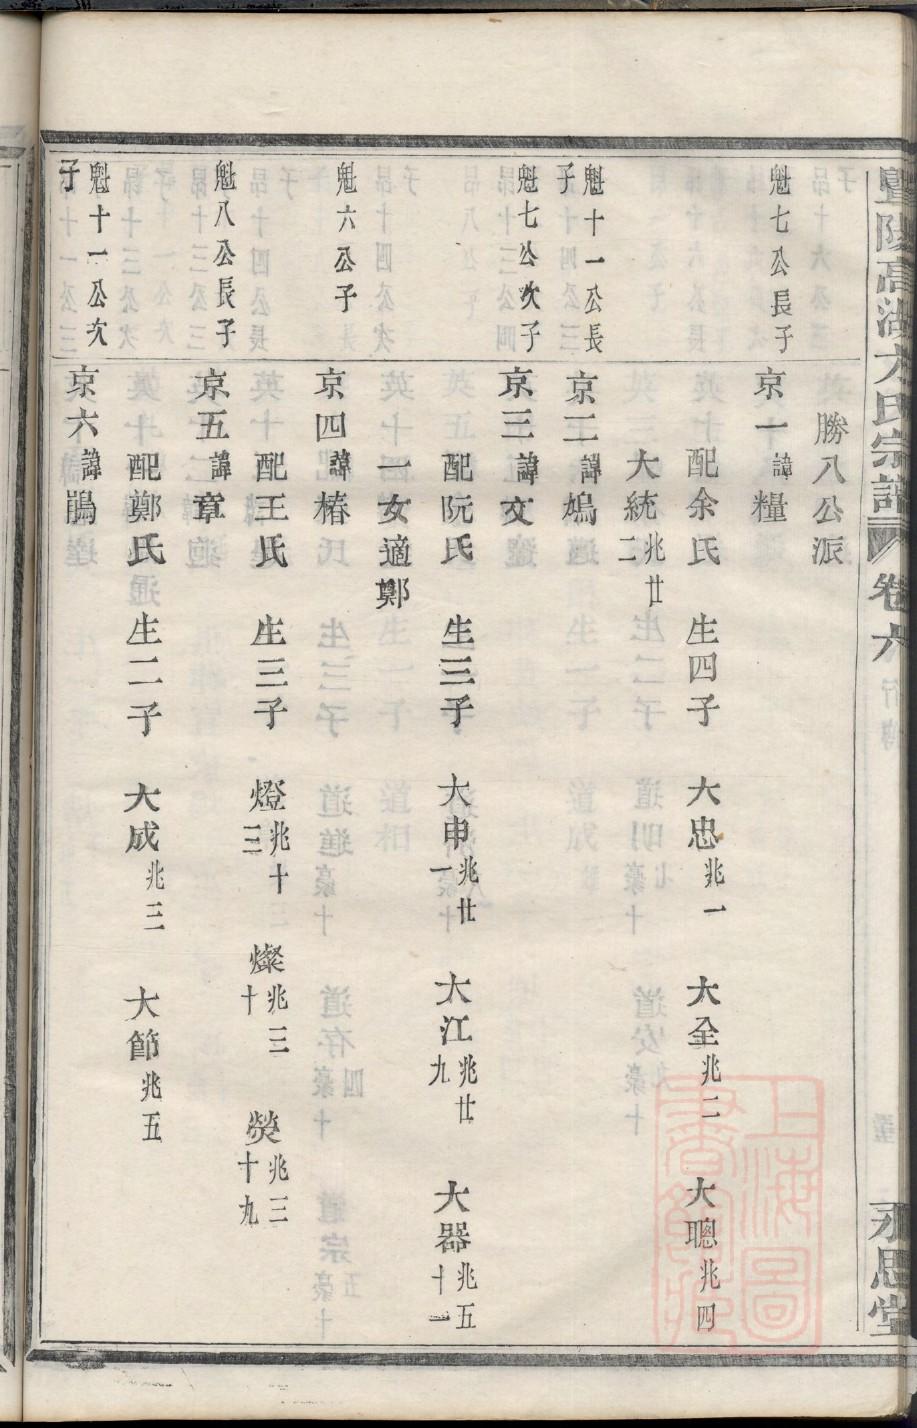 暨陽高湖方氏宗譜 卷六 永思堂
勝八公派
魁七公長子 京一諱糧
配余氏 生四子 大忠兆一 大全兆二 大聰兆四
大統兆廿二
魁十一公長子 京二諱鳩
魁七公次子 京三諱交
配阮氏 生三子 大申兆廿一 大江兆廿九 大器兆五十一
一女適鄭
魁六公子 京四諱椿
配王氏 生三子 燈兆十三 燦兆三十 熒兆三十九
魁八公長子 京五諱章
配鄭氏 生二子 大成兆三 大節兆五
魁十一公次子 京六諱鵑
上海圖書館藏